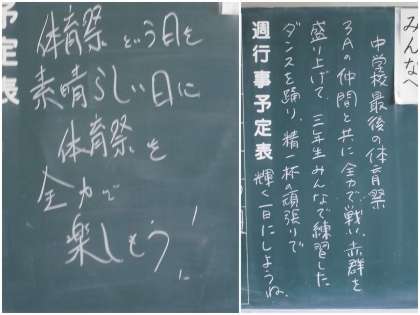 予定表
体育祭という日を
素晴らしい日に
体育祭を
全力で
楽しもう!
みんなへ
中学校最後の体育祭
3Aの仲間と共に全力で戦い、赤群を
盛り上げて、三年生みんなで練習した
ダンスを踊り、精一杯の頑張りで
輝く一日にしようね。
週行事予定表